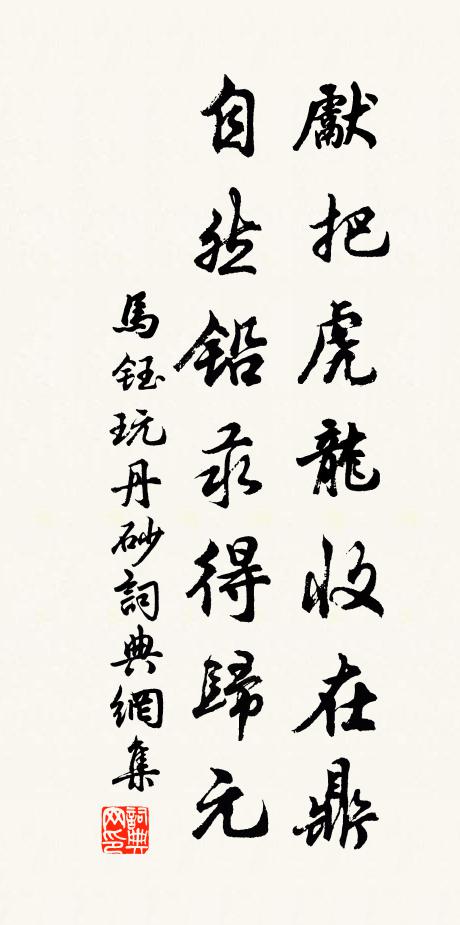 獻把虎龍收在鼎
自然鉛汞得歸元
馬鈺玩丹砂詞典網集
詞典网印